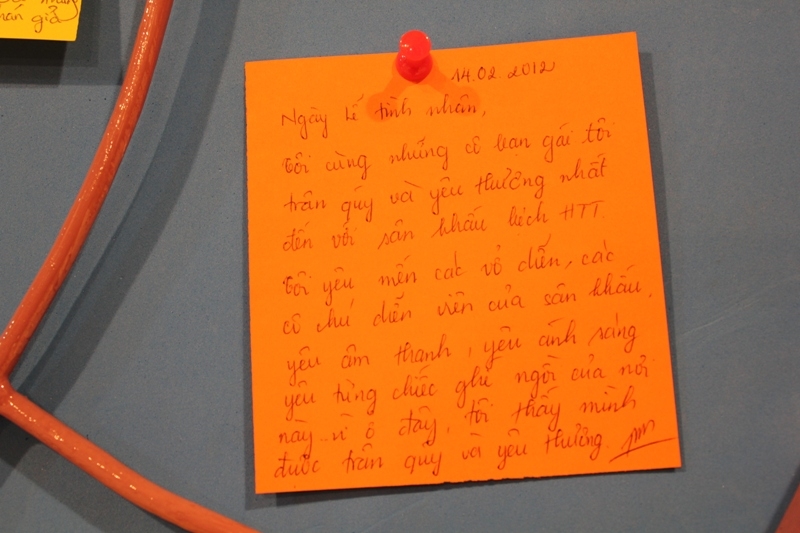 hán giả
14.02.2012
Ngày lễ tình nhân,
Tôi cùng những cô bạn gái tôi
trân quý và yêu thương nhất
đến với sân khấu kịch HTT.
Tôi yêu mến các vở diễn, các
cô chú diễn viên của sân khấu,
yêu âm thanh, yêu ánh sáng
yêu từng chiếc ghế ngồi của nơi
này.. vì ở đây, tôi thấy mình
được trân quý và yêu thương.